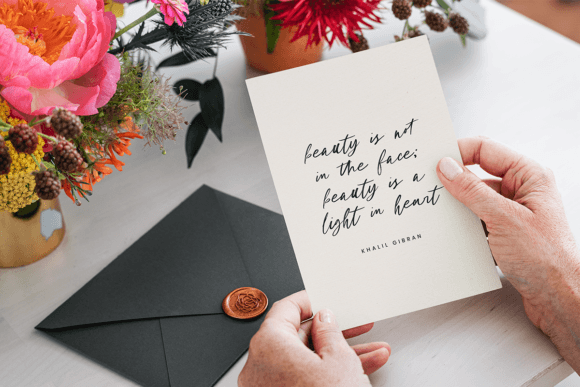 beauty is not
in the face;
beauty is a
light in heart
KHALIL GIBRAN